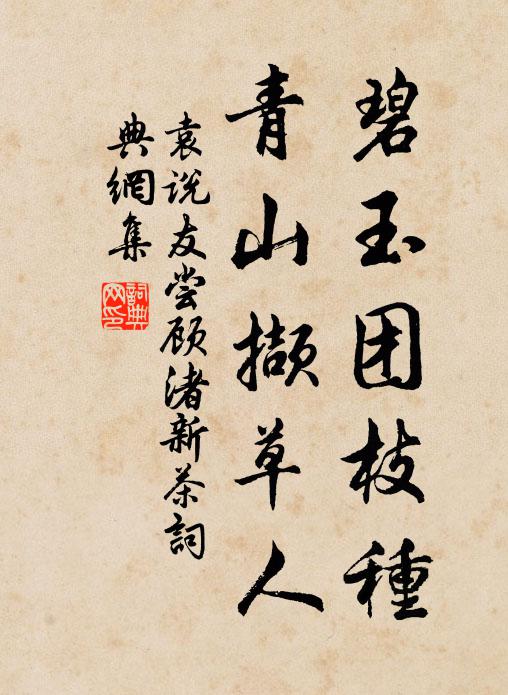 碧玉团枝種
青山擷草人
袁説友尝顾渚新茶詞
典網集
詞典網印